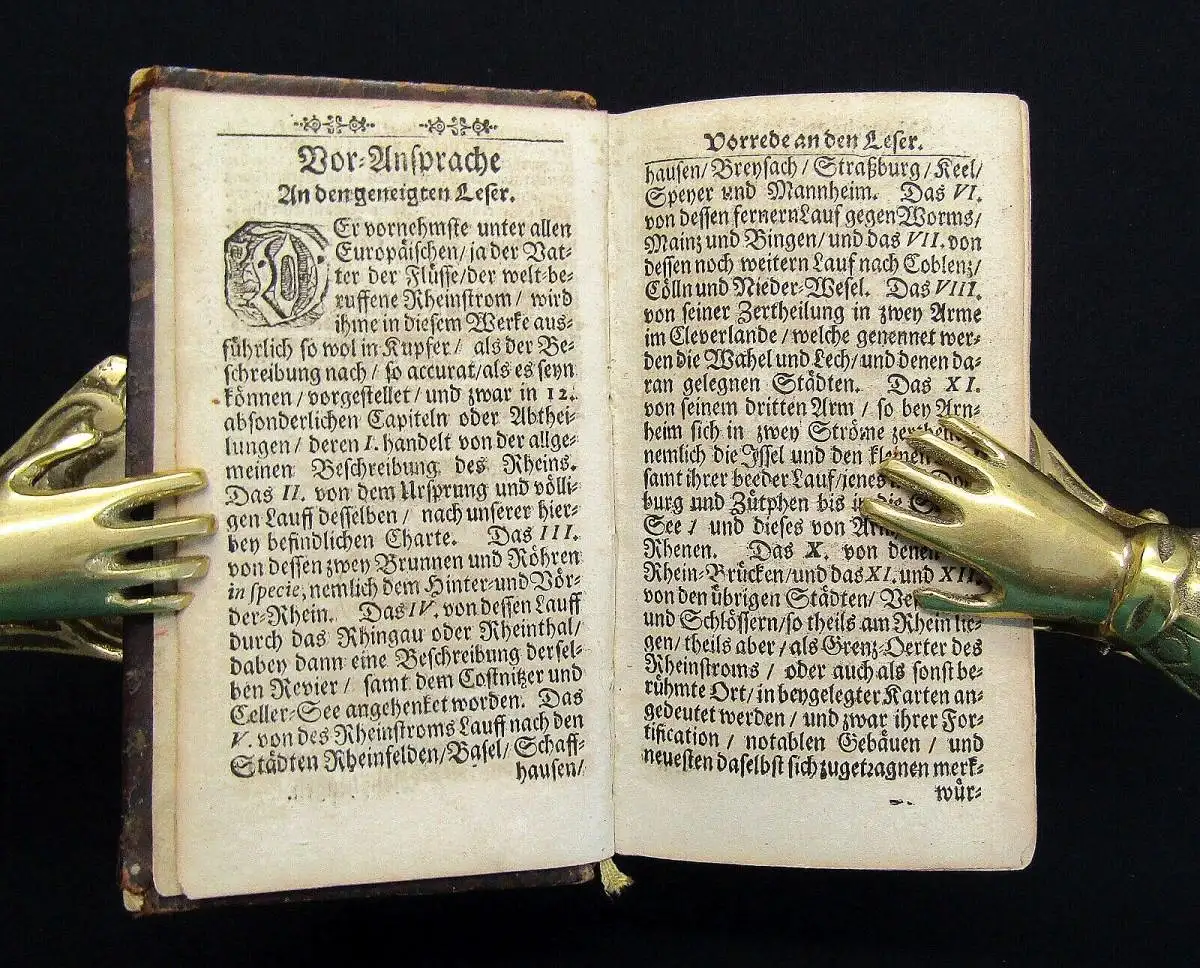 Vor-Ansprache
An den geneigten Leser.
DEr vornehmste unter allen
Europäischen/ ja der Vat-
ter der Flüsse/ der welt-be-
ruffene Rheinstrom/ wird
ihme in diesem Werke aus-
führlich so wol in Kupfer/ als der Be-
schreibung nach/ so accurat/ als es seyn
können/ vorgestellet/ und zwar in 12.
absonderlichen Capiteln oder Abthei-
lungen/ deren I. handelt von der allge-
meinen Beschreibung des Rheins.
Das II. von dem Ursprung und völli-
gen Lauff desselben/ nach unserer hier-
bey befindlichen Charte. Das III.
von dessen zwey Brunnen und Röhren
in specie, nemlich dem Hinter-und Vör-
der-Rhein. Das IV. von dessen Lauff
durch das Rhingau oder Rheinthal/
dabey dann eine Beschreibung dersel-
ben Revier/ samt dem Costnitzer und
Celler-See angehenket worden. Das
V. von des Rheinstroms Lauff nach den
Städten Rheinfelden/ Basel/ Schaff-
hausen/
Vorrede an den Leser.
hausen/ Breysach/ Straßburg/ Keel/
Speyer und Mannheim. Das VI.
von dessen fernern Lauf gegen Worms/
Mainz und Bingen/ und das VII. von
dessen noch weitern Lauf nach Coblenz/
Cölln und Nieder-Wesel. Das VIII.
von seiner Zertheilung in zwey Arme
im Cleverlande/ welche genennet wer-
den die Wahel und Lech/ und denen da-
ran gelegnen Städten. Das XI.
von seinem dritten Arm/ so bey Arn-
heim sich in zwey Ströme
nemlich die Issel und den kleinen
samt ihrer beeder Lauf/ jenes
burg und Zütphen bis in die
See/ und dieses von
Rhenen. Das X. von denen
Rhein-Brücken/ und das XI. und XII.
von den übrigen Städten/
und Schlössern/ so theils am Rhein lie-
gen/ theils aber/ als Grenz-Oerter des
Rheinstroms/ oder auch als sonst be-
rühmte Ort/ in beygelegter Karten an-
gedeutet werden/ und zwar ihrer For-
tification/ notablen Gebäuen/ und
neuesten daselbst sich zugetragnen merk-
wür-